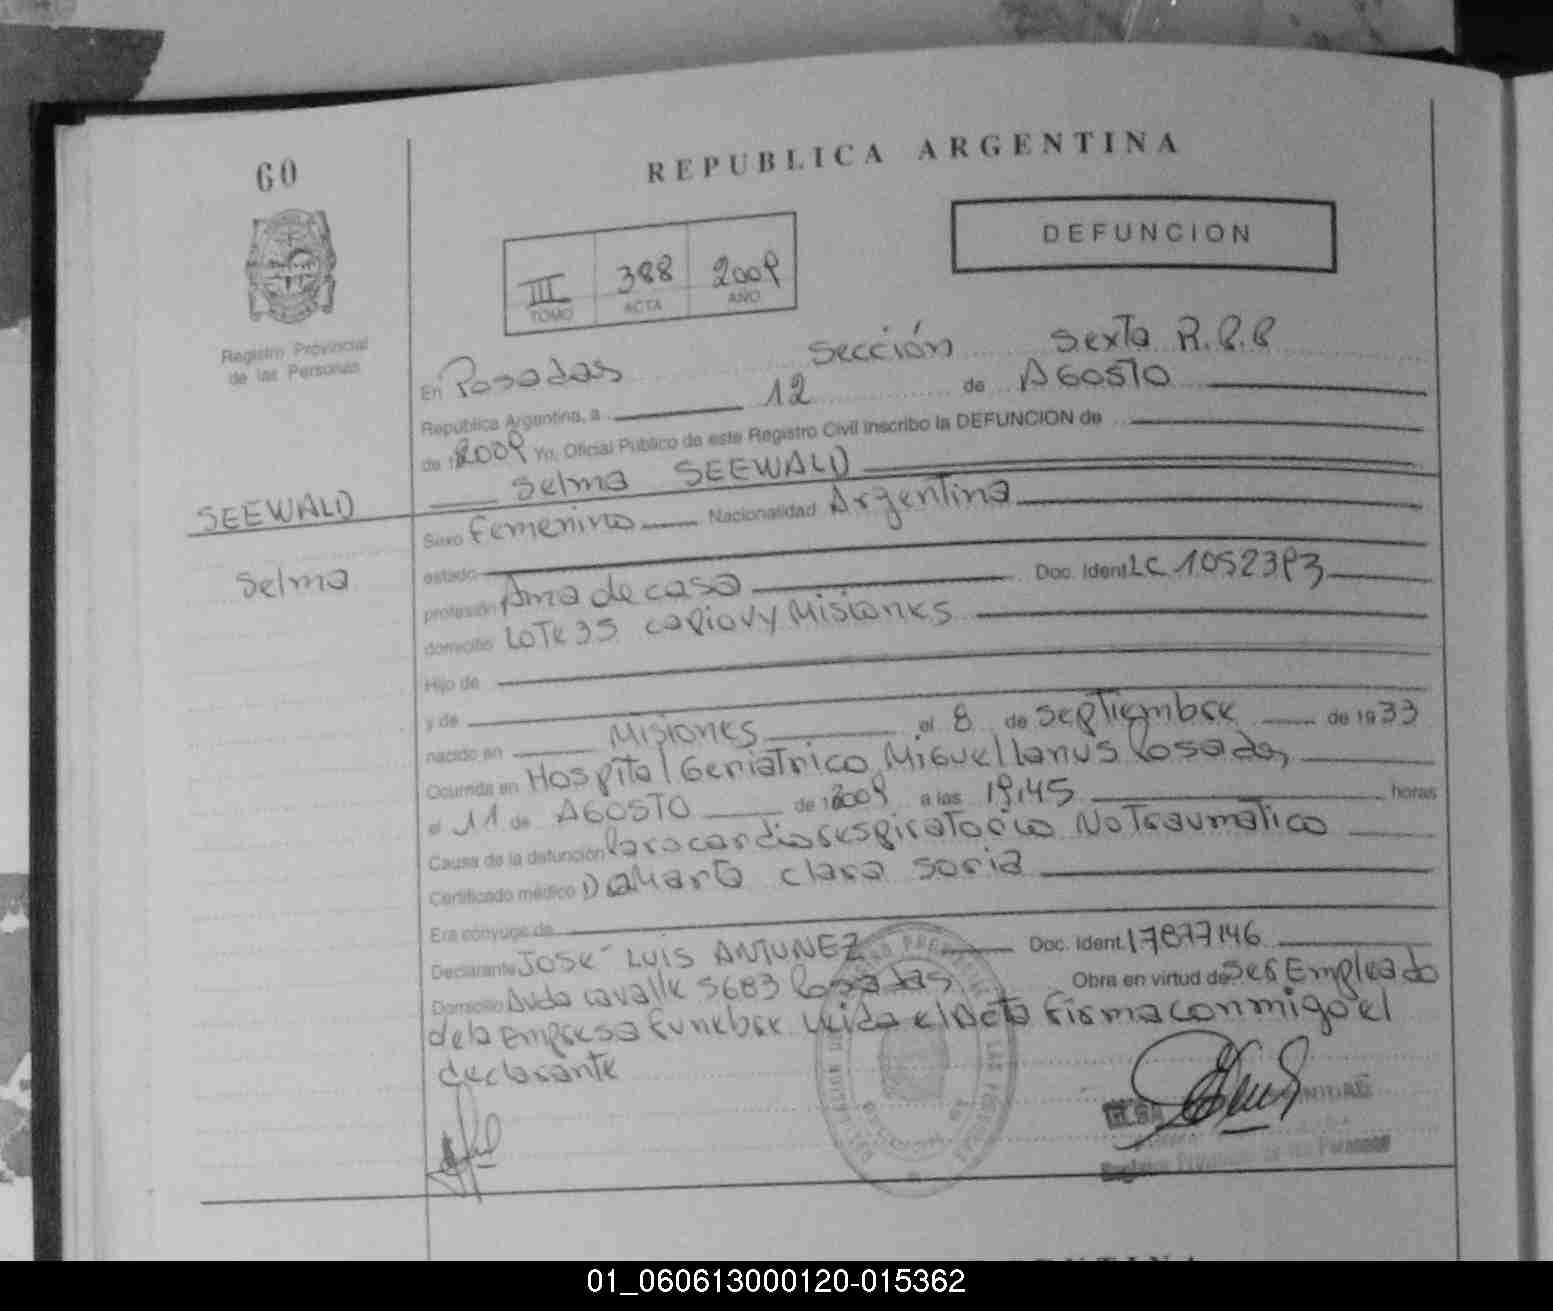 60
REPUBLICA ARGENTINA
DEFUNCION
III 388 2009
TOMO ACTA AÑO
Registro Provincial
de las Personas
En Posadas Sección Sexta
República Argentina, a 12 de AGOSTO
de 2009 Yo, Oficial Público de este Registro Civil inscribo la DEFUNCION de
SEEWALD
Selma
Selma SEEWALD
Sexo Femenino Nacionalidad Argentina
estado
profesión Ama de casa Doc. Ident LC 1052393
domicilio LOTE 35 capiovy Misiones
Hijo de
y de
nacido en Misiones el 8 de septiembre de 1933
Ocurrida en Hospital Geriatrico Miguel lanus Posadas
el 11 de AGOSTO de 2009 a las 19,45 horas
Causa de la defunción Parocardiorespiratorio No Traumatico
Certificado médico Dra Marta clara soria
Era cónyuge de
Declarante JOSÉ LUIS ANTUNEZ Doc. Ident. 17877146
Domicilio Avda cavalle 5683 Posadas Obra en virtud de ser Empleado
de la Empresa funebre Leida el Acta firma conmigo el
declarante
01_060613000120-015362